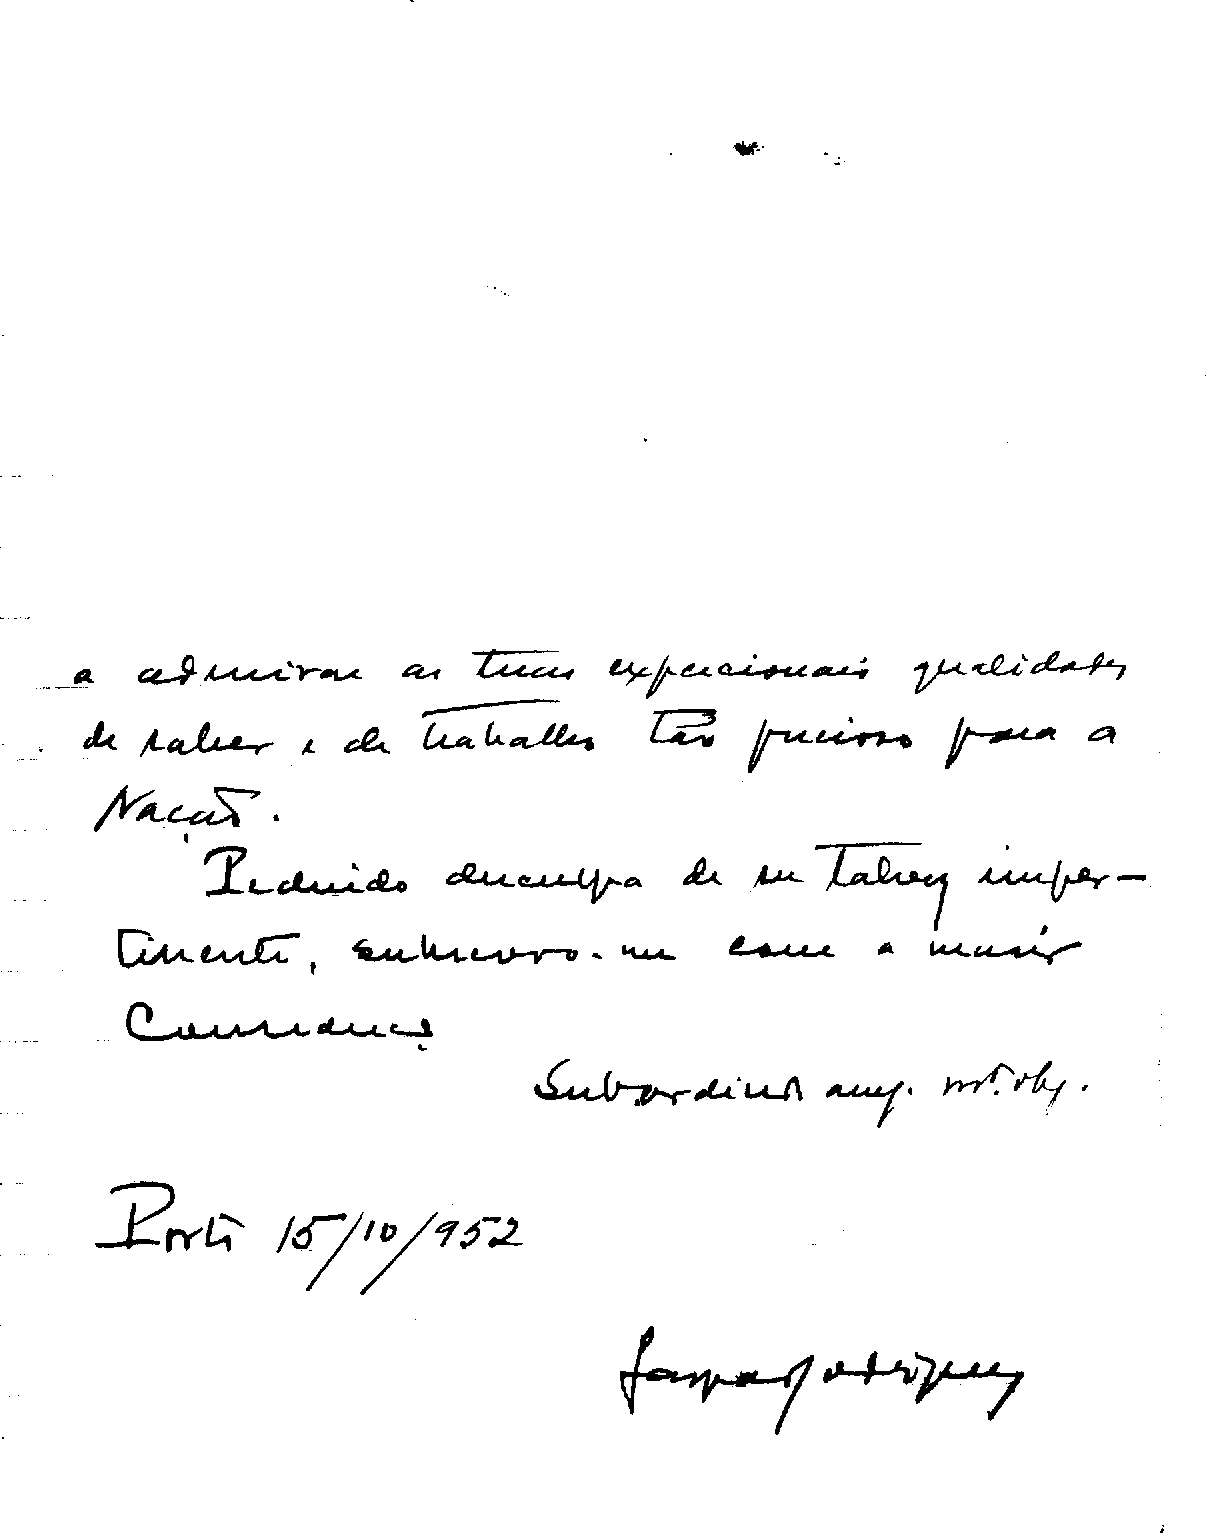 a admirar as tuas expecionais qualidades
de saber e de trabalho tão precioso para a
Nação.
Pedindo desculpa de ser talvez imper-
tinente, subscrevo-me com a maior
Consideração
Subordinado amg. mt. obg.
Porto 15/10/952
Gaspar Rodrigues